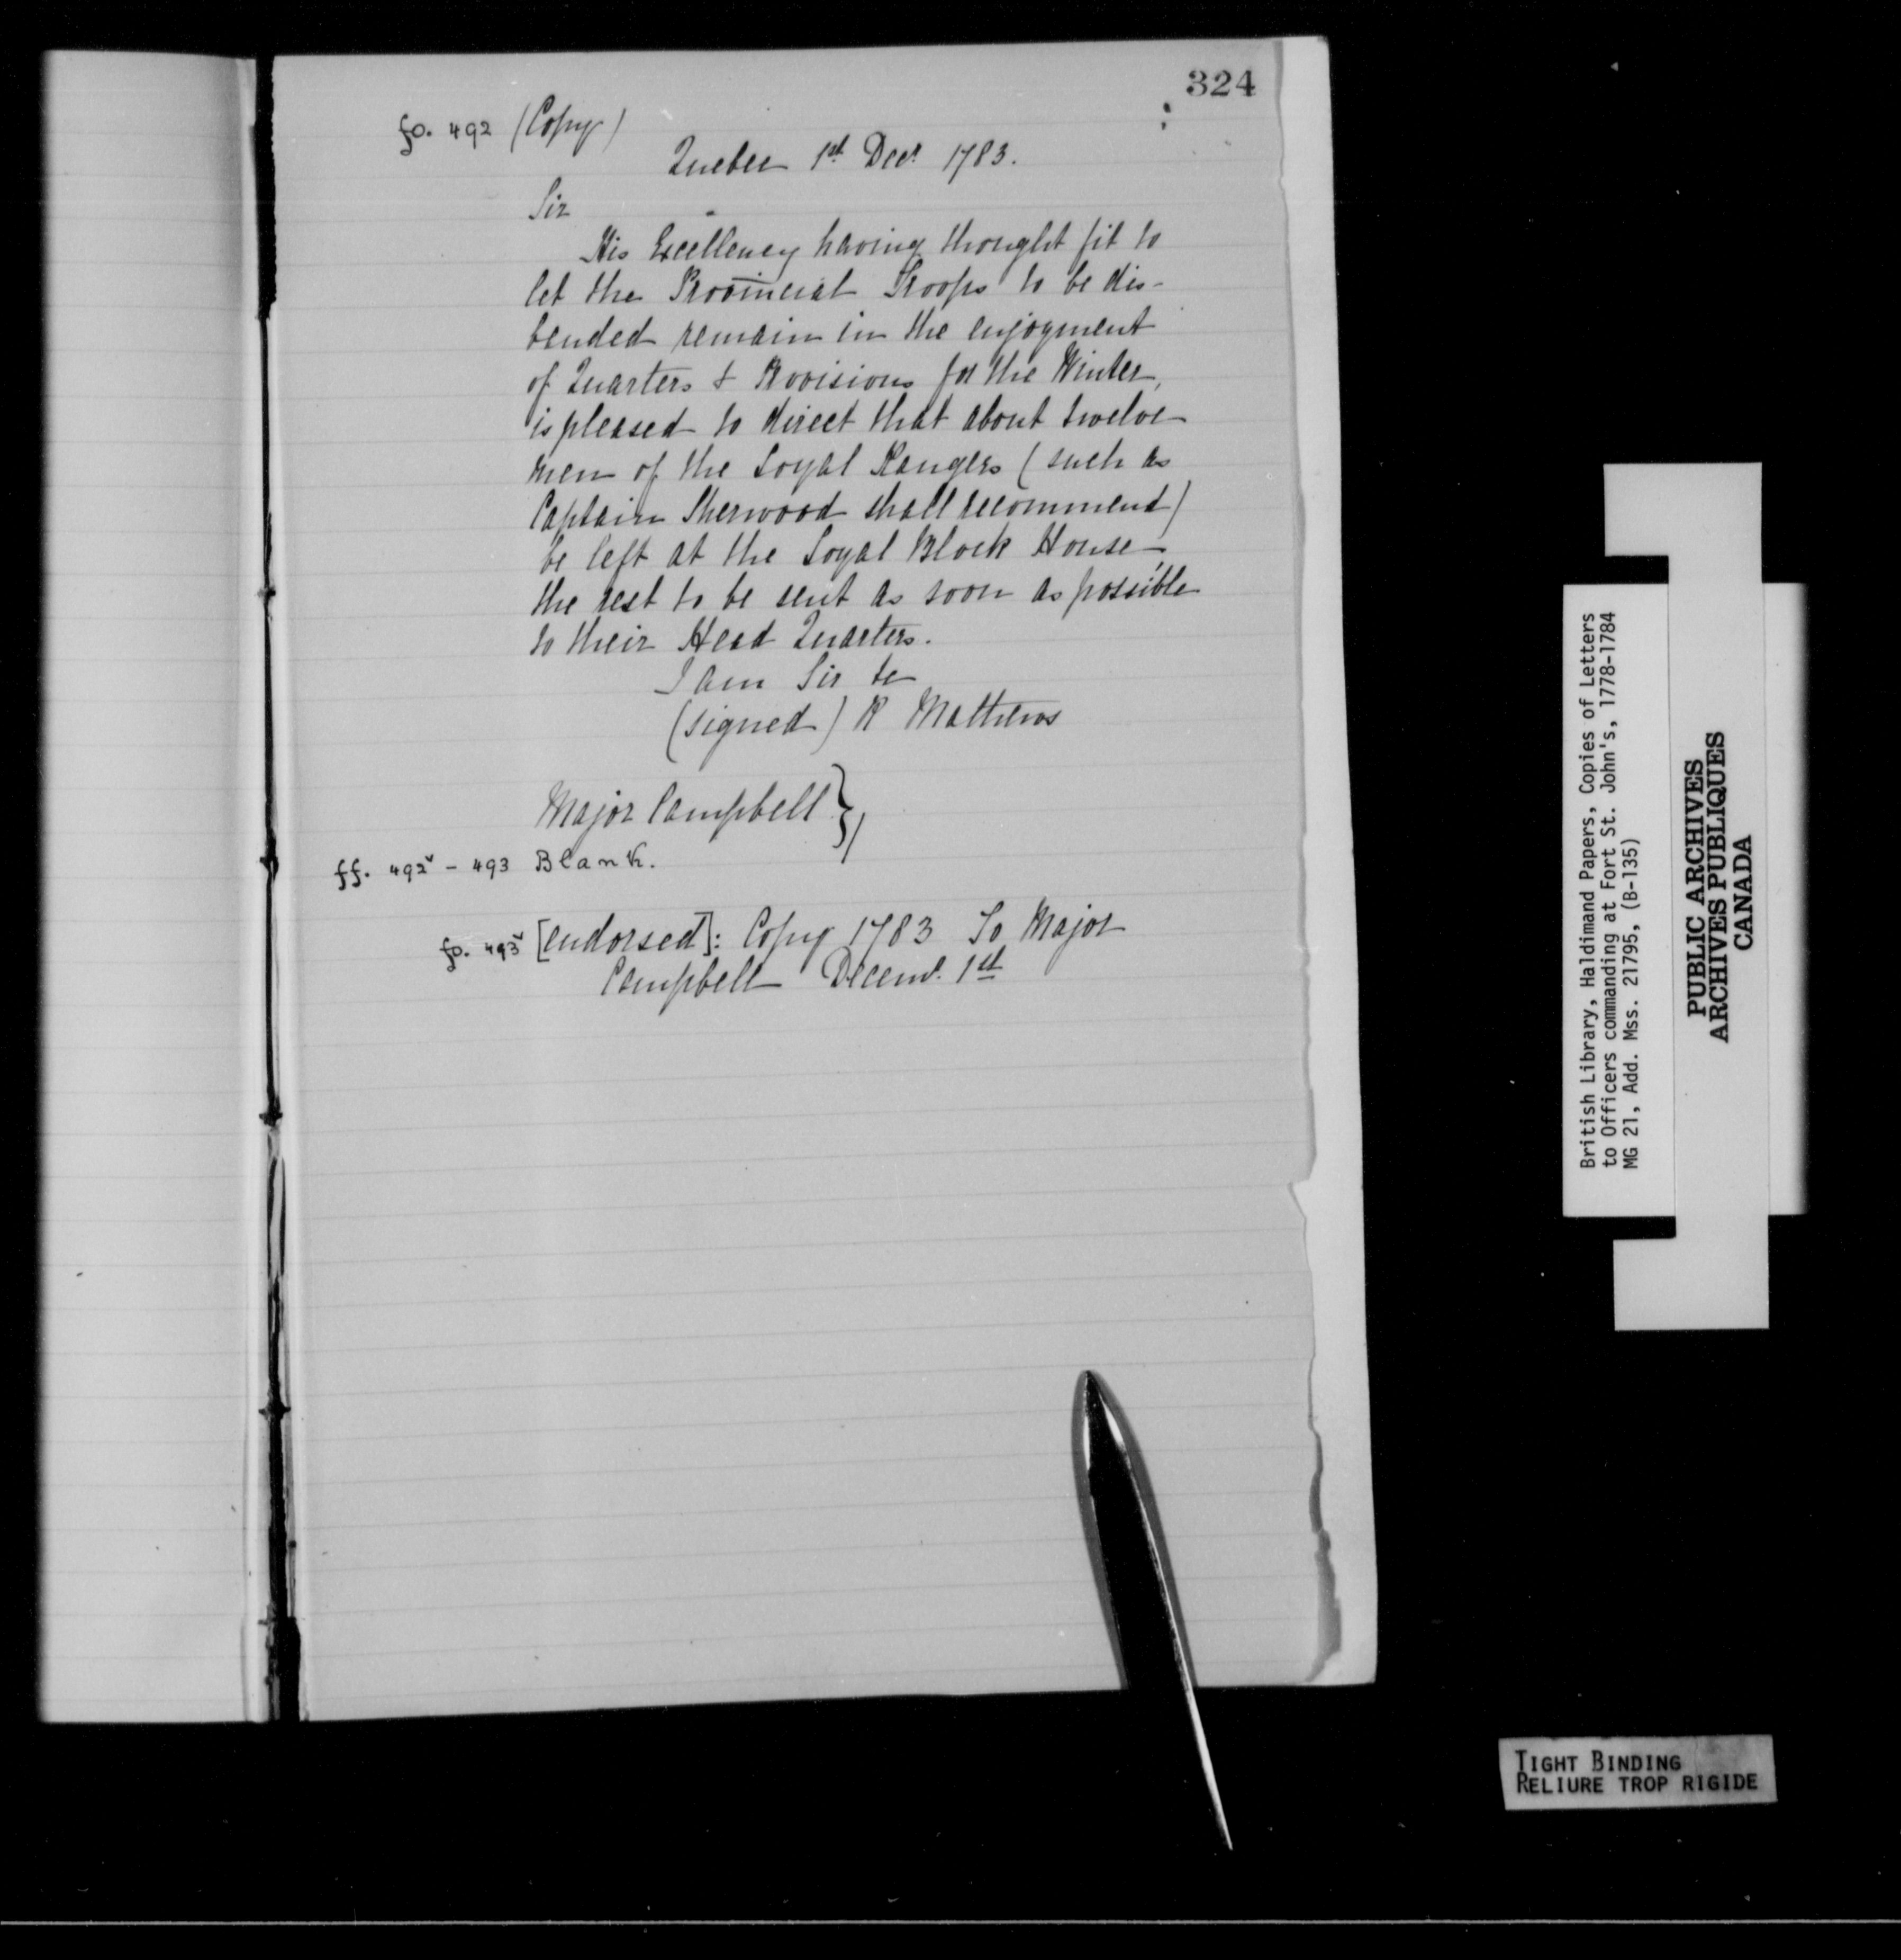 324
fo. 492 (Copy)
Quebec 1st Decr 1783.
Sir
His Excellency having thought fit to
let the Provincial Troops to be dis-
banded remain in the enjoyment
of Quarters & Provisions for the Winter,
is pleased to direct that about twelve
men of the Loyal Rangers (such as
Captain Sherwood shall recommend)
be left at the Loyal Block House,
the rest to be sent as soon as possible
to their Head Quarters.
I am Sir &c
(signed) R Mathews
Major Campbell }
ff. 492v - 493 Blank.
fo. 493v [endorsed]: Copy 1783 To Major
Campbell Decemr. 1st
British Library, Haldimand Papers, Copies of Letters
to Officers commanding at Fort St. John's, 1778-1784
MG 21, Add. Mss. 21795, (B-135)
PUBLIC ARCHIVES
ARCHIVES PUBLIQUES
CANADA
TIGHT BINDING
RELIURE TROP RIGIDE